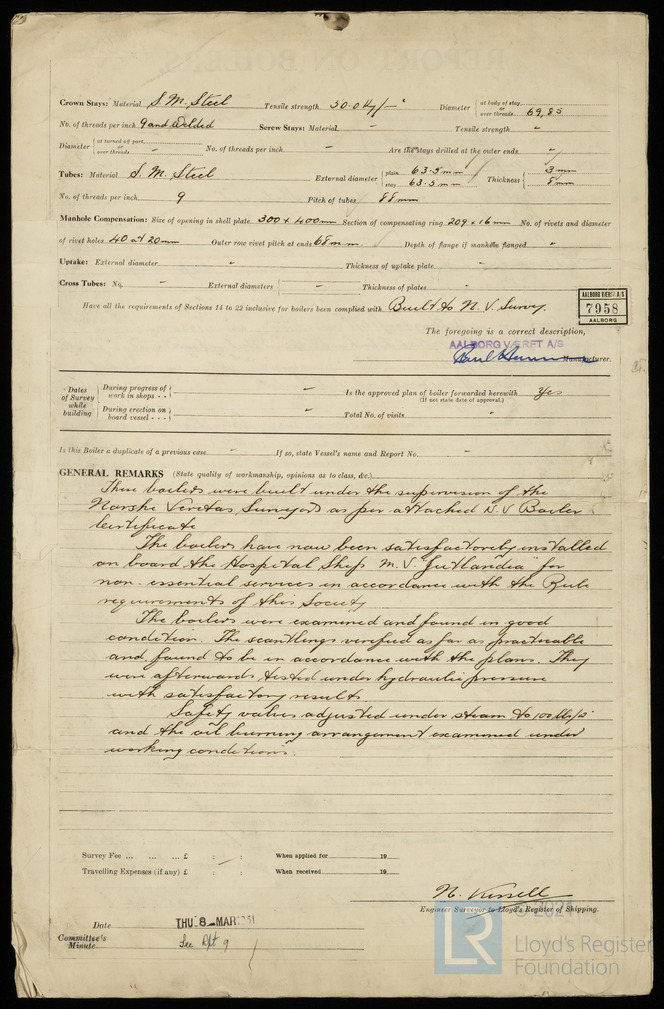 Crown Stays: Material S.M. Steel Tensile strength 50.0 Kg/ Diameter { at body of stay or over threads 69,85
No. of threads per inch 9 and Welded Screw Stays: Material - Tensile strength "
Diameter { at turned off part or over threads - No. of threads per inch - Are the stays drilled at the outer ends "
Tubes: Material S.M. Steel External diameter { plain 63.5 mm stay 63.5 mm Thickness { 3 mm 8 mm
No. of threads per inch 9 Pitch of tubes 88 mm
Manhole Compensation: Size of opening in shell plate 300 x 400 mm Section of compensating ring 209 x 16 mm No. of rivets and diameter
of rivet holes 40 at 20mm Outer row rivet pitch at ends 68 mm. Depth of flange if manhole flanged "
Uptake: External diameter " Thickness of uptake plate "
Cross Tubes: No. - External diameters { - Thickness of plates -
Have all the requirements of Sections 14 to 22 inclusive for boilers been complied with Built to N.V. Survey.
AALBORG VÆRFT A/S
7958
AALBORG
The foregoing is a correct description,
AALBORG VÆRFT A/S
Manufacturer.
Dates of Survey while building { During progress of work in shops - - { - Is the approved plan of boiler forwarded herewith Yes
(If not state date of approval.)
During erection on board vessel - - - { - Total No. of visits -
Is this Boiler a duplicate of a previous case - If so, state Vessel's name and Report No. -
GENERAL REMARKS (State quality of workmanship, opinions as to class, &c.)
These boilers were built under the supervision of the
Norske Veritas Surveyors as per attached N.V Boiler
Certificate
The boilers have now been satisfactorily installed
on board the Hospital Ship M.V. "Jutlandia" for
non-essential services in accordance with the Rule
requirements of this Society
The boilers were examined and found in good
condition. The scantlings verified as far as practicable
and found to be in accordance with the plans. They
were afterwards tested under hydraulic pressure
with satisfactory results
Safety valves adjusted under steam to 100 lbs/
and the oil burning arrangement examined under
working conditions.
Survey Fee ... ... ... £ : - : When applied for 19
Travelling Expenses (if any) £ : : When received 19
N. Kessell
Engineer Surveyor to Lloyd's Register of Shipping.
Date THU 8 - MAR 1951
Committee's Minute See Rpt 9
© 2021
LR
Lloyd's Register
Foundation